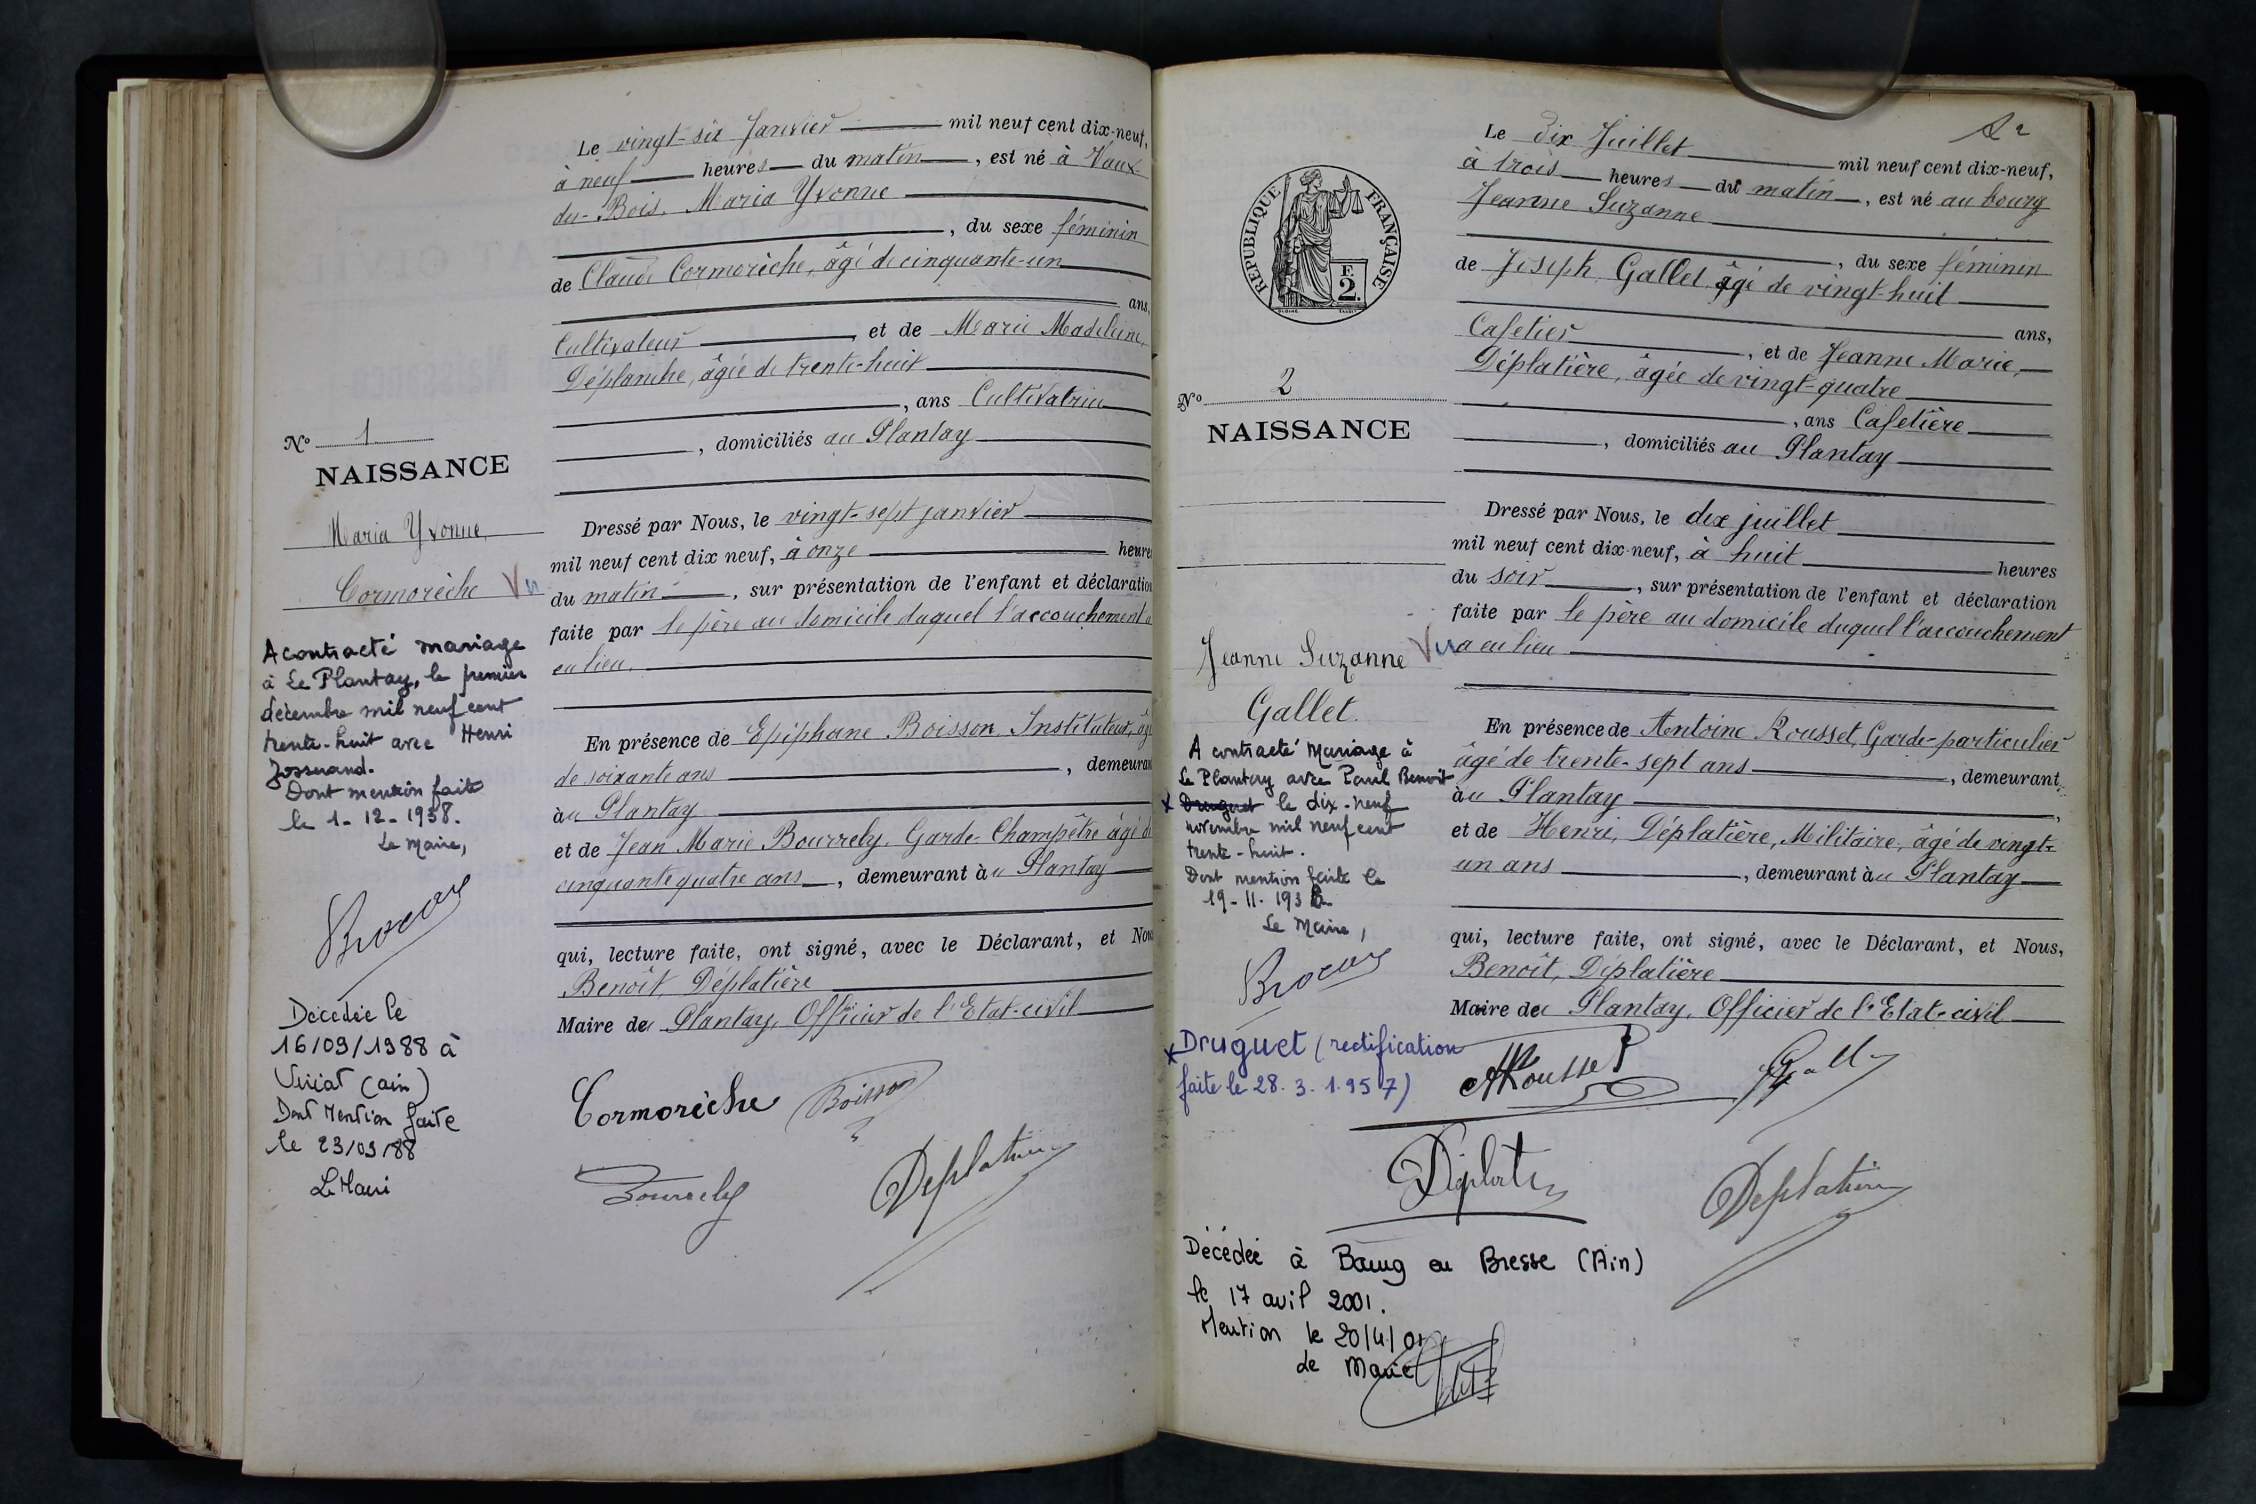 Le vingt-six Janvier mil neuf cent dix-neuf,
à neuf heures du matin, est né à Vaux-
du-Bois, Maria Yvonne
, du sexe féminin
de Claude Cormorèche, âgé de cinquante-un
ans,
Cultivateur, et de Marie Madeleine,
Déplanche, âgée de trente-huit
, ans Cultivatrice
, domiciliés au Plantay
Dressé par Nous, le vingt-sept janvier
mil neuf cent dix neuf, à onze heures
du matin, sur présentation de l'enfant et déclaration
faite par le père au domicile duquel l'accouchement a
eu lieu.
En présence de Epiphane Boisson, Instituteur, âgé
de soixante ans, demeurant
àu Plantay
et de Jean Marie Bourrely, Garde-Champêtre âgé de
cinquante quatre ans, demeurant àu Plantay
qui, lecture faite, ont signé, avec le Déclarant, et Nous
Benoît, Déplatière
Maire de Plantay, Officier de l'Etat-civil
Cormorèche Boisson
Bourrely Déplatière
N° 1
NAISSANCE
Maria Yvonne
Cormorèche Vu
A contracté mariage
à Le Plantay, le premier
décembre mil neuf cent
trente-huit avec Henri
Josserand.
Dont mention faite
le 1-12-1938.
Le Maire,
Décédée le
16/09/1988 à
Viriat (ain)
Dont Mention faite
le 23/09/88
Le Maire
A 2
Le dix Juillet mil neuf cent dix-neuf,
à trois heures du matin, est né au bourg
Jeanne Suzanne
, du sexe féminin
de Joseph Gallet âgé de vingt-huit
ans,
Cafetier, et de Jeanne Marie,
Déplatière, âgée de vingt-quatre
, ans Cafetière
, domiciliés au Plantay
Dressé par Nous, le dix juillet
mil neuf cent dix-neuf, à huit heures
du soir, sur présentation de l'enfant et déclaration
faite par le père au domicile duquel l'accouchement
a eu lieu
En présence de Antoine Rousset, Garde-particulier
âgé de trente-sept ans, demeurant
àu Plantay,
et de Henri, Déplatière, Militaire, âgé de vingt-
un ans, demeurant àu Plantay
qui, lecture faite, ont signé, avec le Déclarant, et Nous,
Benoît, Déplatière
Maire de Plantay, Officier de l'Etat-civil
ARousset Gallet
Déplatière Déplatière
REPUBLIQUE FRANÇAISE
F.
2.
N° 2
NAISSANCE
Jeanne Suzanne Vu
Gallet.
A contracté Mariage à
Le Plantay avec Paul Benoit
x Druguet le dix-neuf
novembre mil neuf cent
trente-huit.
Dont mention faite le
19-11-1938
Le Maire,
x Druguet (rectification
faite le 28.3.1957)
Décédée à Bourg en Bresse (Ain)
le 17 avril 2001.
Mention le 20/4/01
Le Maire